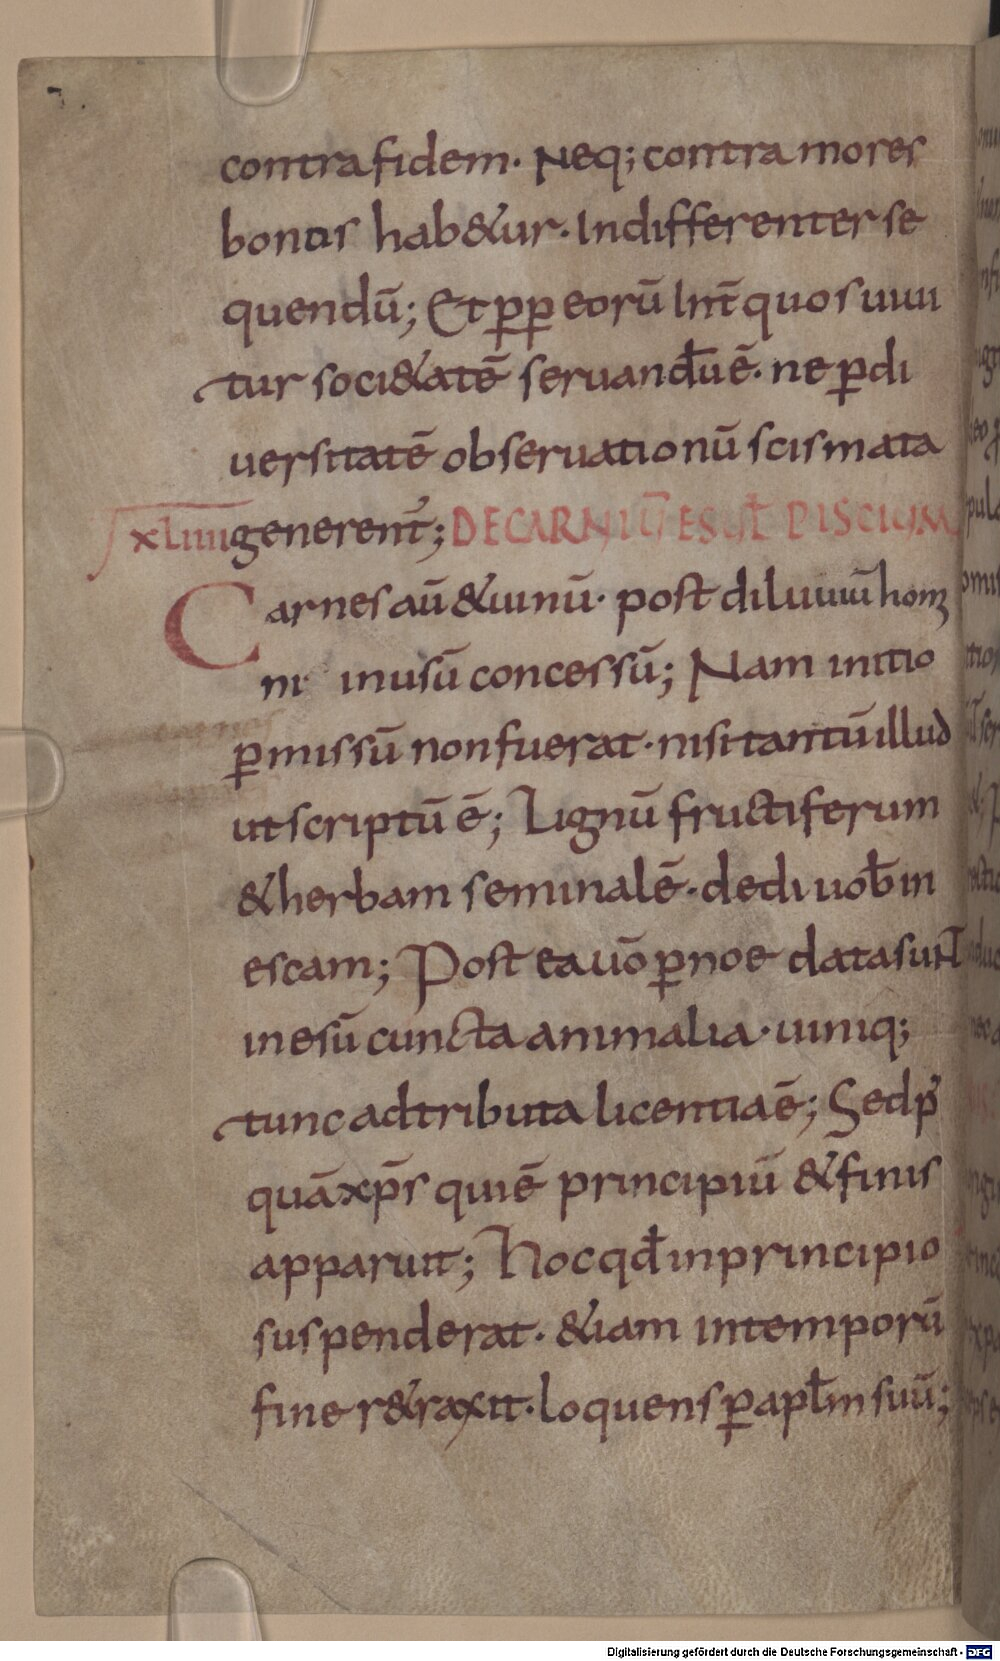 contra fidem. Neq; contra mores
bonas hab&ur. Indifferenter se
quendū; Et pp eorū int̄ quos uiui
tur soci&atē seruand̄u ē. ne p̱di
uersitatē obseruationū scismata
xliiii generent̄; DE CARNIŪ ESU ƚ PISCIUM
Carnes aū & uinū. post diluuiū hom
ni in usū concessū; Nam initio
p̱missū non fuerat. nisi tantū illud
ut scriptū ē; Lignū fructiferum
& herbam seminalē. dedi uob̄ in
escam; Post ea uō p̱ noe data sunt
in esū cuncta animalia. uiniq;
tunc adtributa licentia ē; Sed p̱
quā xp̄s qui ē principiū & finis
apparuit; Hoc qd̄ in principio
suspenderat. &iam in temporū
fine r&raxit. loquens p̱ apƚm suū;
Digitalisierung gefördert durch die Deutsche Forschungsgemeinschaft - DFG